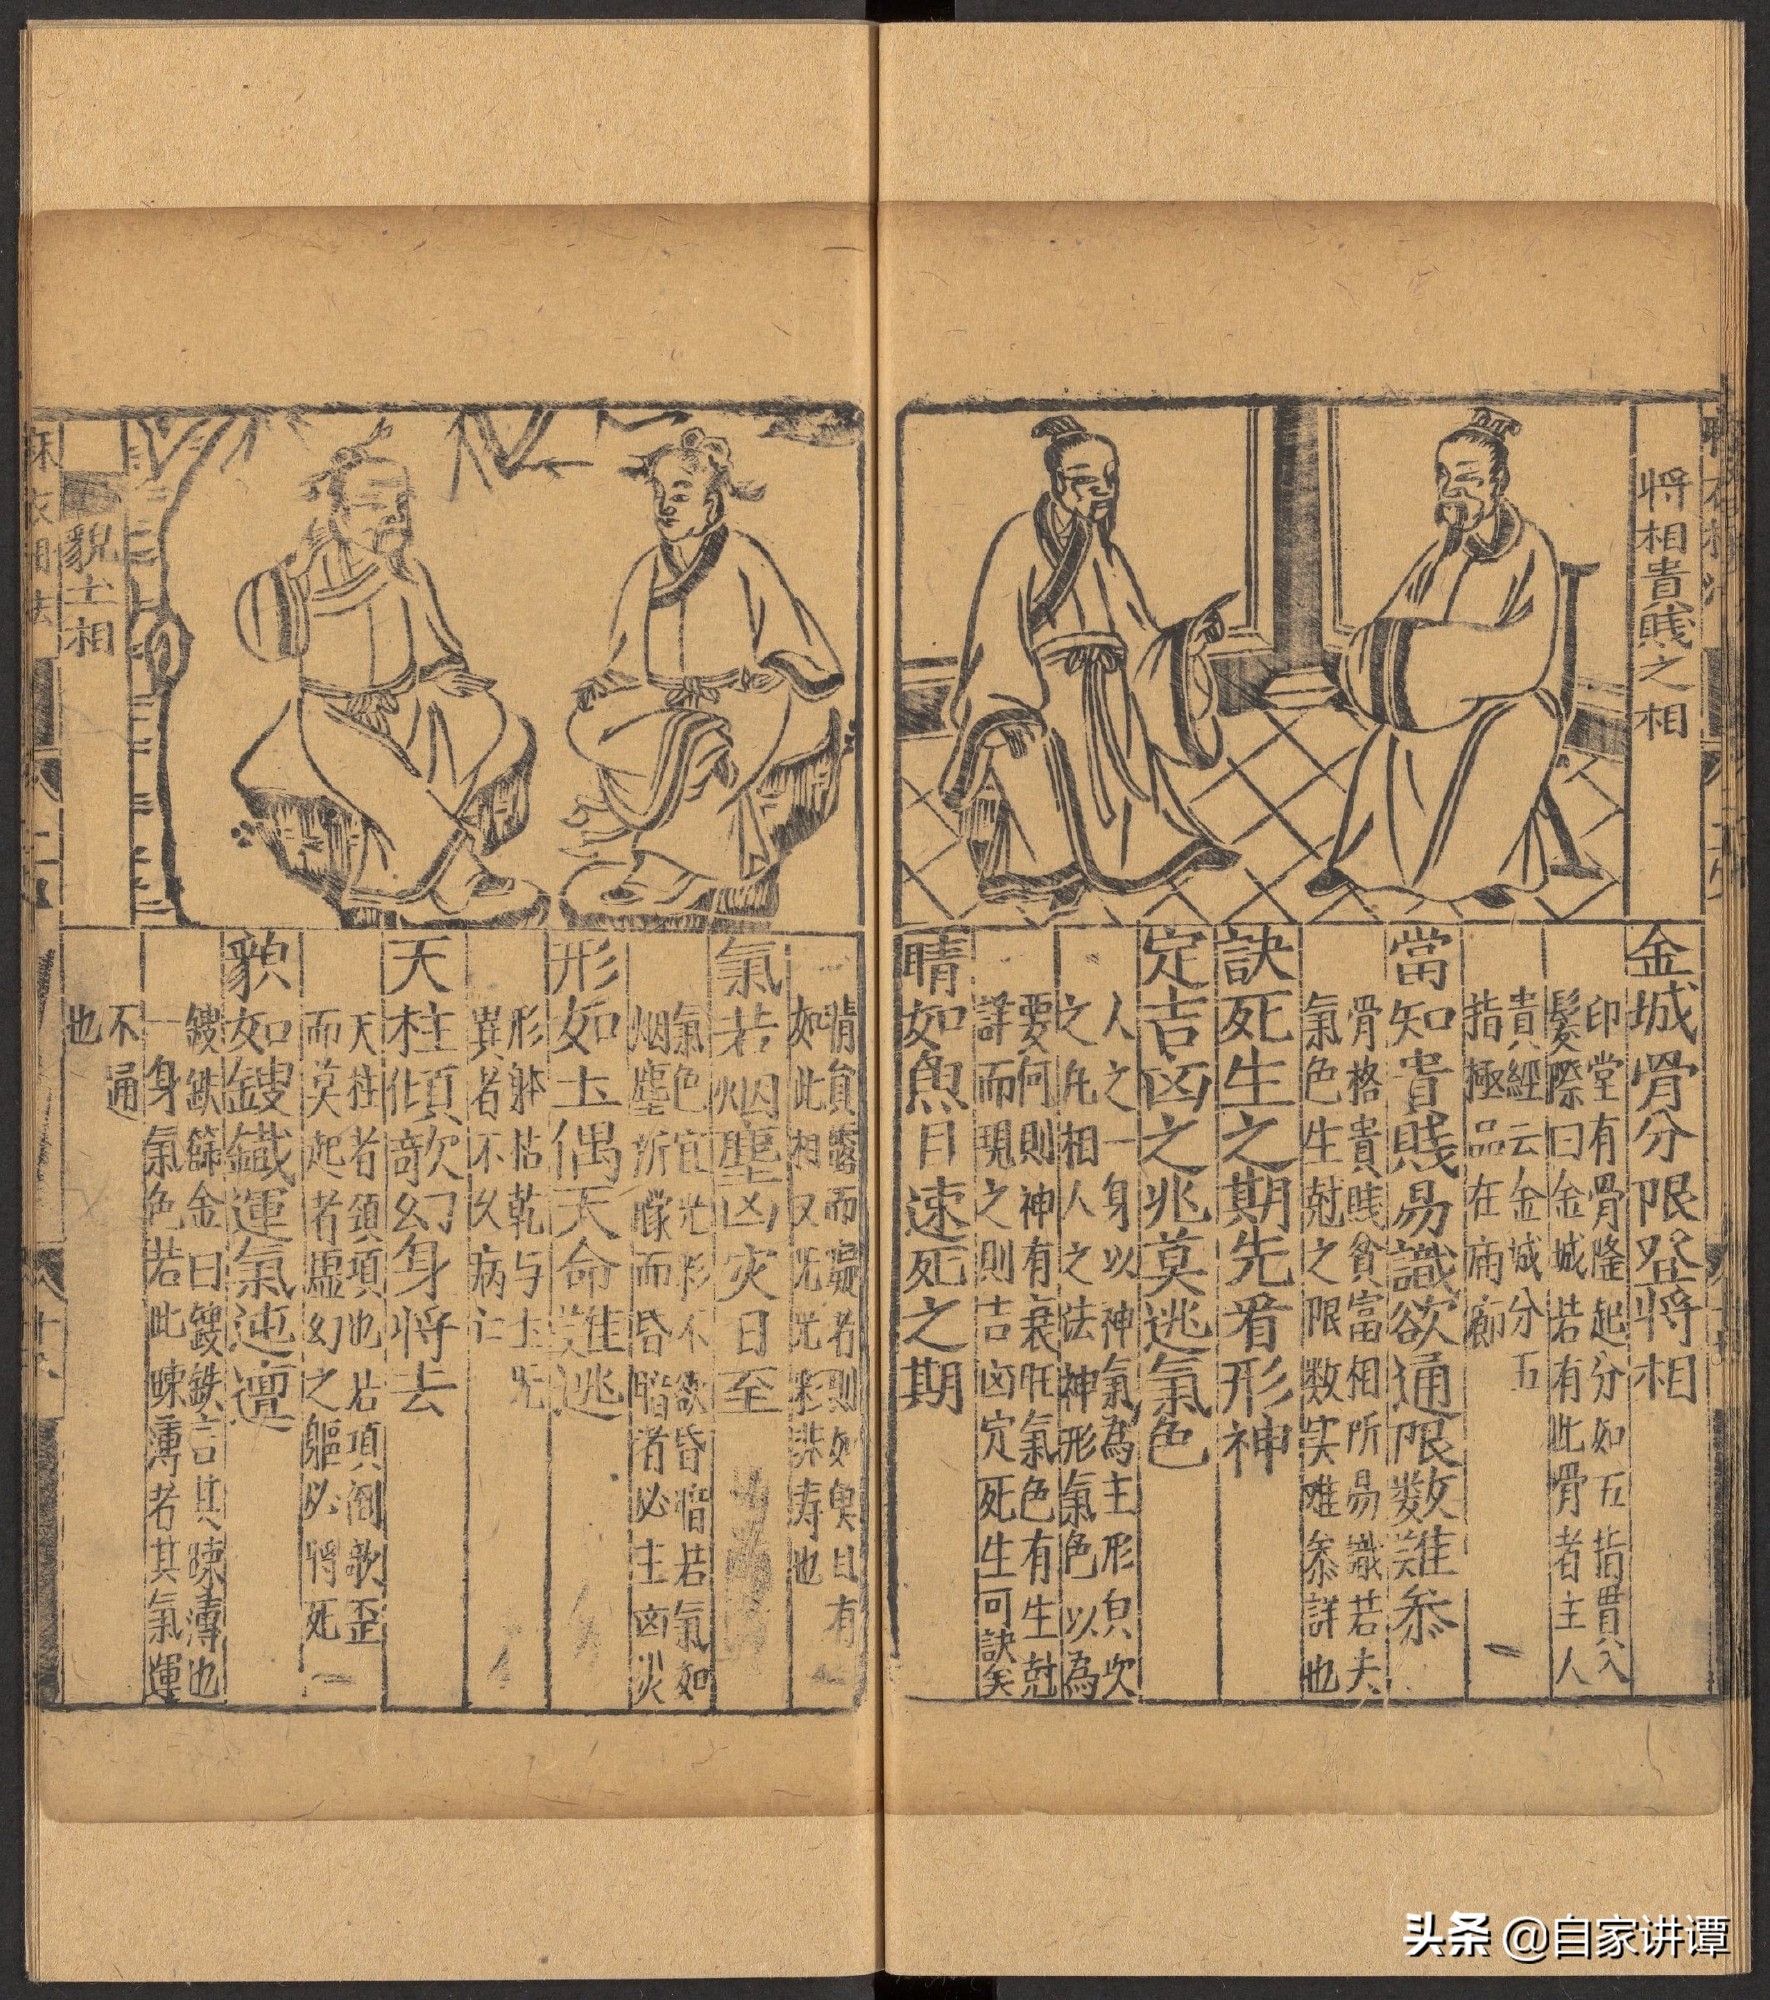 將相貴賤之相
金城骨分限登將相
印堂有骨隆起分如五指貫入
髮際曰金城若有此骨者主人
貴經云金城分五
指極品在廟廊
當知貴賤易識欲通限数難參
骨格貴賤貧富相所易識若夫
氣色生尅之限数实难参詳也
訣死生之期先看形神
定吉凶之兆莫逃氣色
人之一身以神氣為主形皃次
之凢相人之法神形氣色以為
要何則神有衰旺氣色有生尅
詳而現之則吉凶定死生可訣矣
睛如魚目速死之期
而凝者則如魚目有
如此相又旡光彩非寿也
氣若烟塵凶灾日至
氣色宜光彩不欲昏暗若氣如
烟塵所朦而昏暗者必主凶災
形如土偶天命難逃
形躰枯乾与土旡
異者不久病亡
天柱傾欹幻身将去
天柱者頸項也若項倒歌歪
而莫起者虛幻之軀必将死
貌如鍐鐵運氣迍邅
鍐鉄篩金曰鍐鉄言其疎薄也
一身氣色若此疎薄者其氣運
不通
也
貌土相
麻衣相法
头条 @自家讲谭